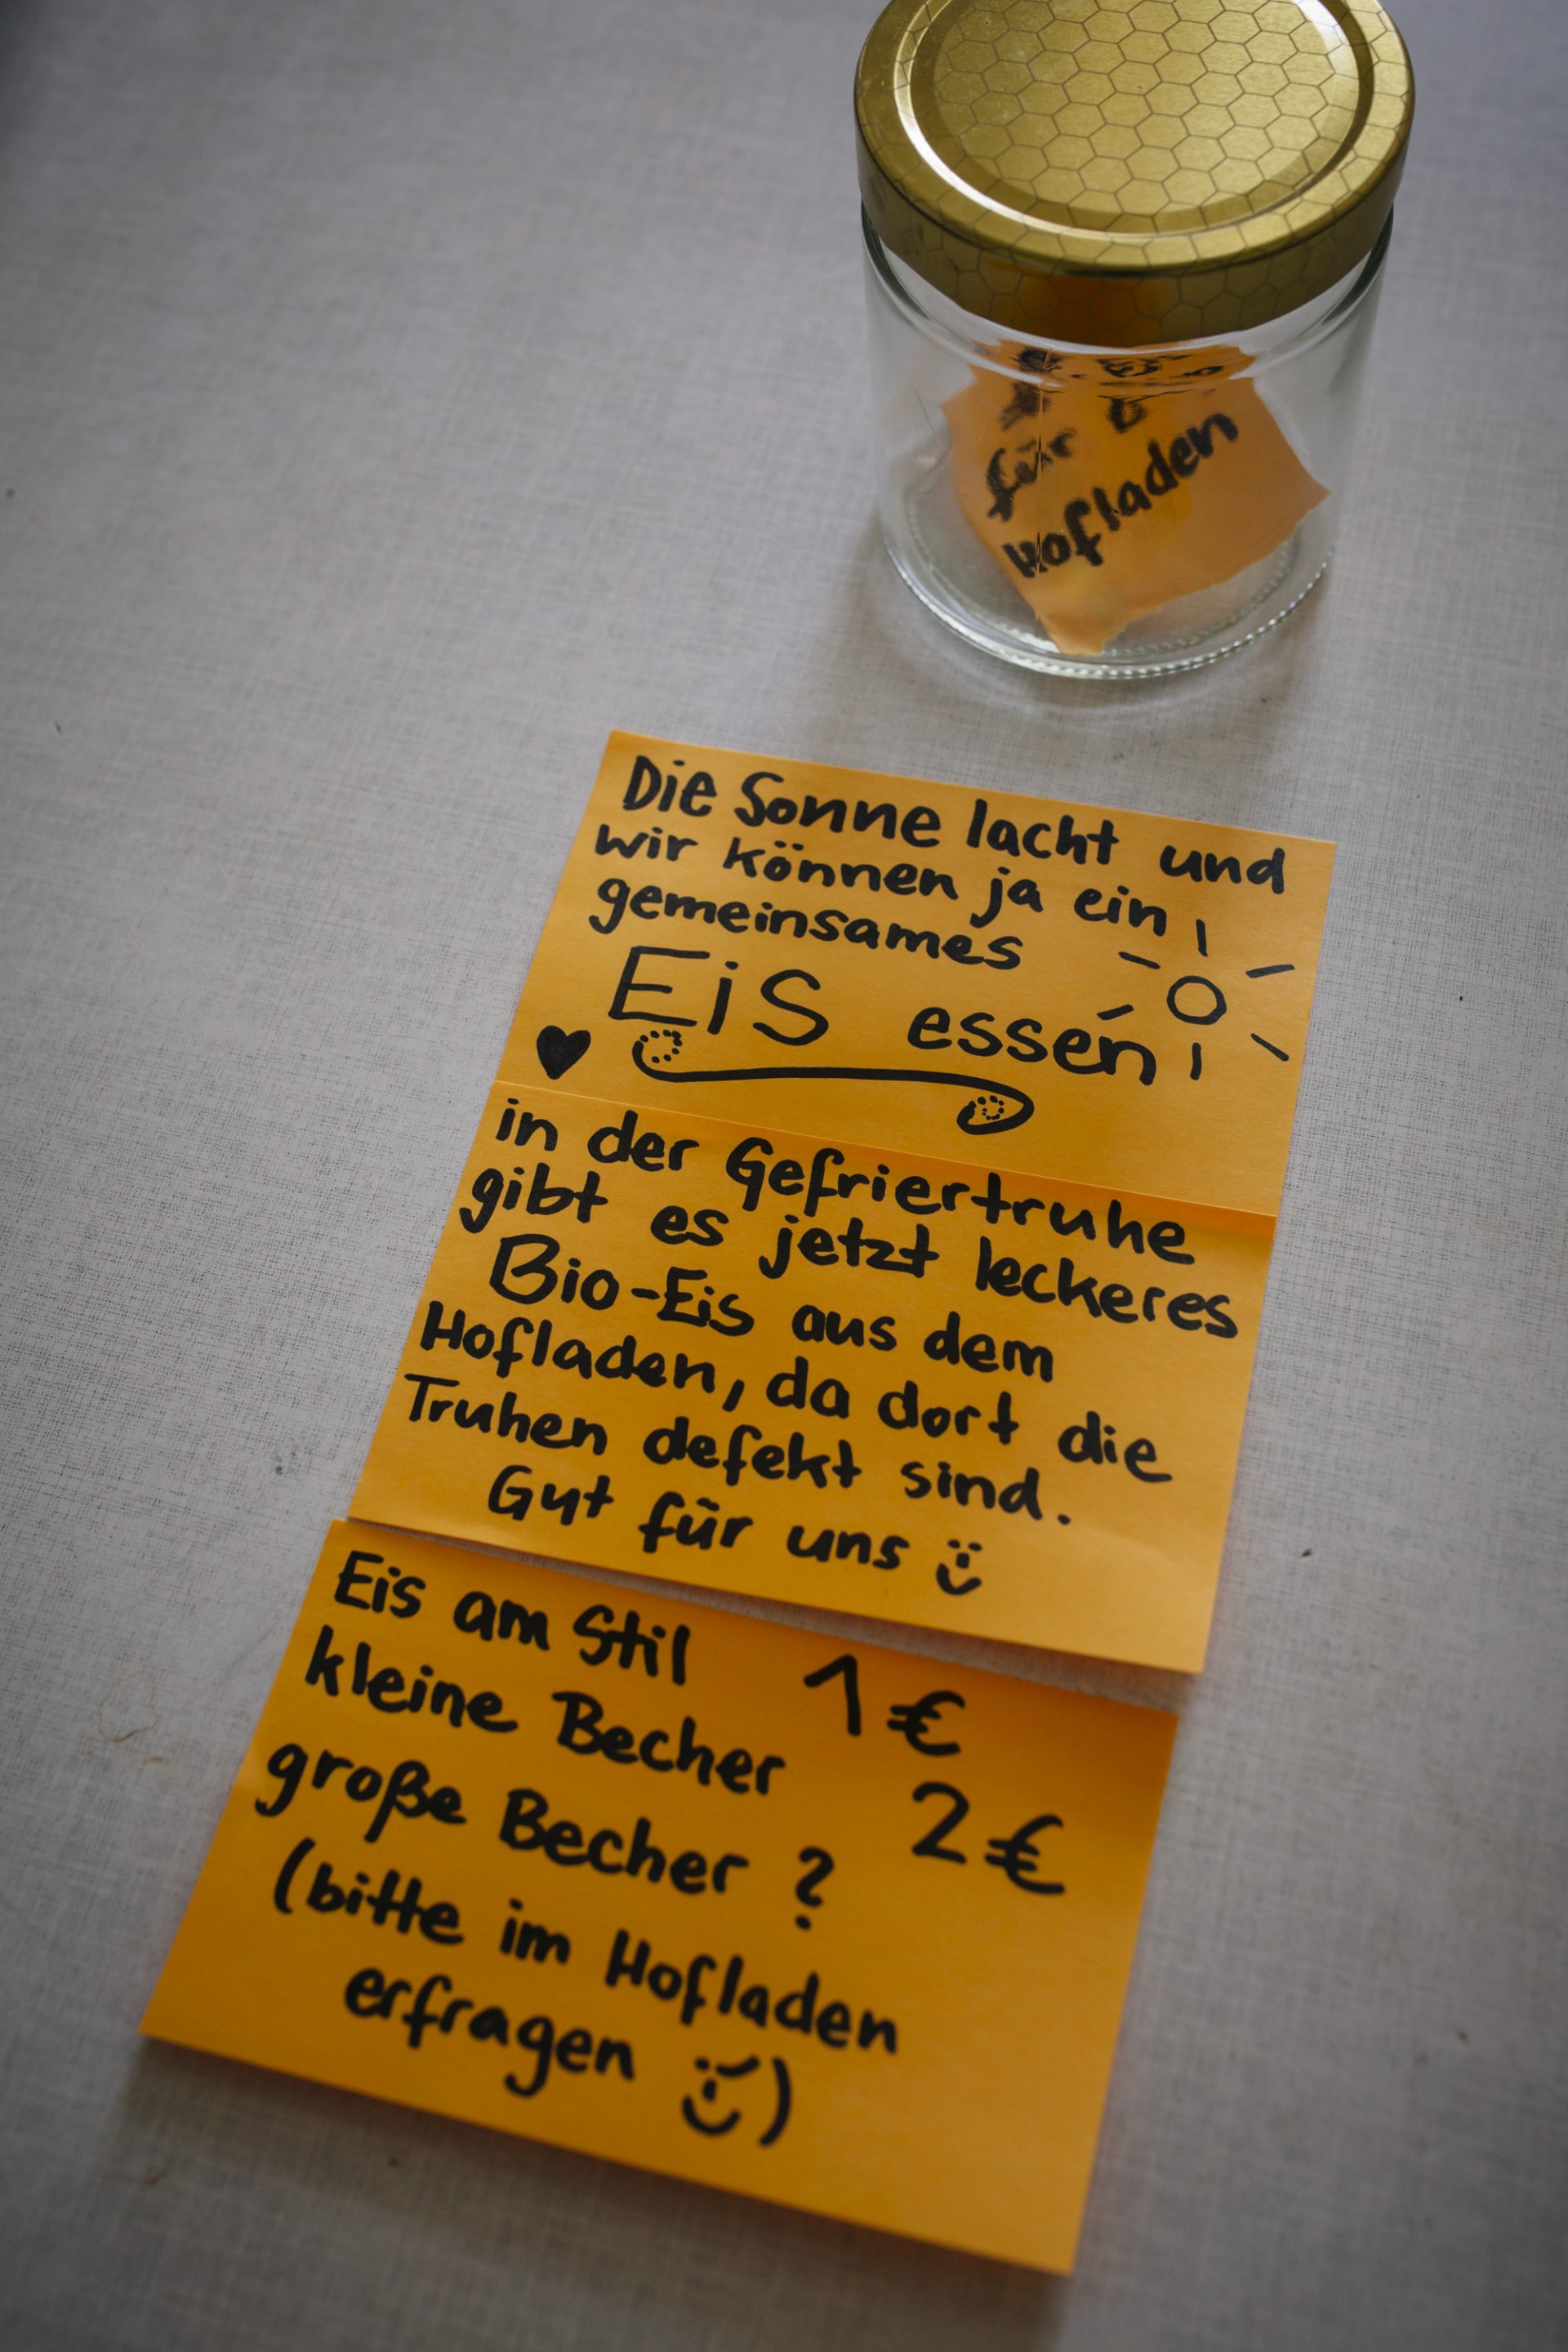 für
Hofladen
Die Sonne lacht und
wir können ja ein
gemeinsames
Eis essen
in der Gefriertruhe
gibt es jetzt leckeres
Bio-Eis aus dem
Hofladen, da dort die
Truhen defekt sind.
Gut für uns
Eis am Stil 1€
kleine Becher 2€
große Becher ?
(bitte im Hofladen
erfragen )